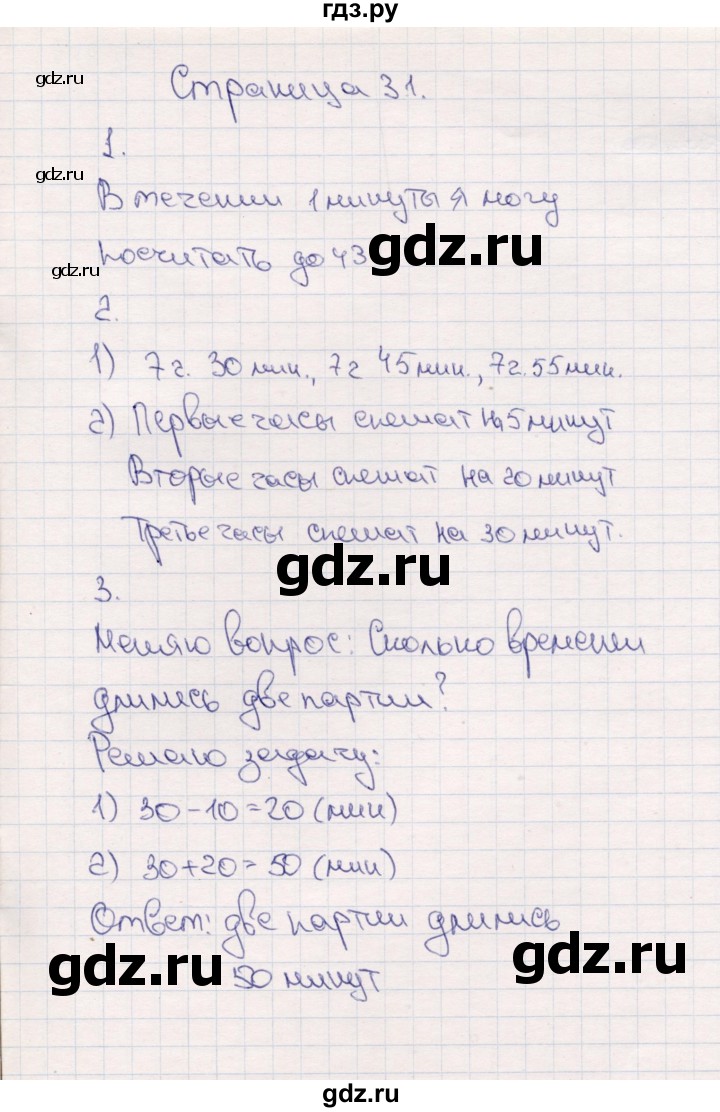 гдз.ру
gdz.ru
Страница 31.
1.
gdz.ru
В течении 1 минуты я могу
посчитать до 43
gdz.ru
gdz.ru
2.
1) 7 г. 30 мин., 7 г 45 мин., 7 г. 55 мин.
2) Первые часы спешат на 5 минут
Вторые часы спешат на 20 минут
Третье часы спешат на 30 минут.
gdz.ru
3.
Меняю вопрос: Сколько времени
длились две партии?
Решаю задачу:
1) 30-10=20 (мин)
2) 30+20=50 (мин)
Ответ: две партии длились
gdz.ru
gdz.ru
50 минут
gdz.ru